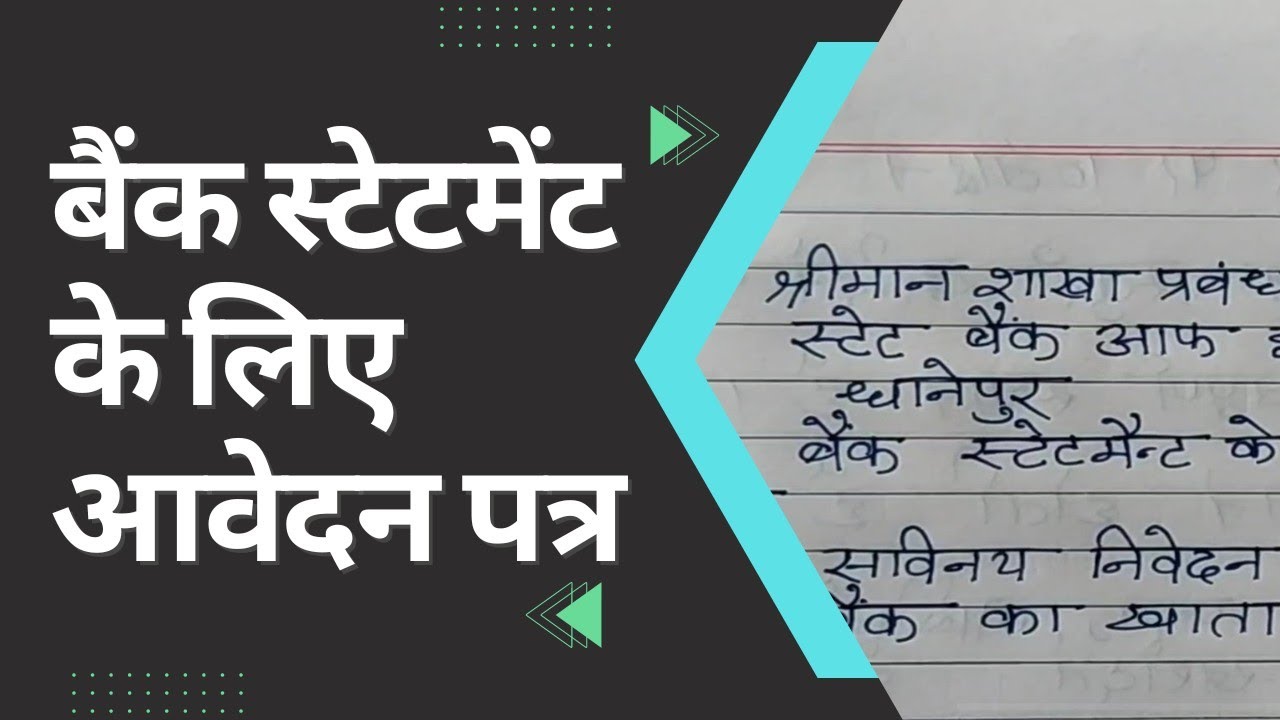 बैंक स्टेटमेंट
के लिए
आवेदन पत्र
श्रीमान शाखा प्रबंध
स्टेट बैंक आफ
धानेपुर
बैंक स्टेटमैन्ट के
सविनय निवेदन
बैंक का खाता